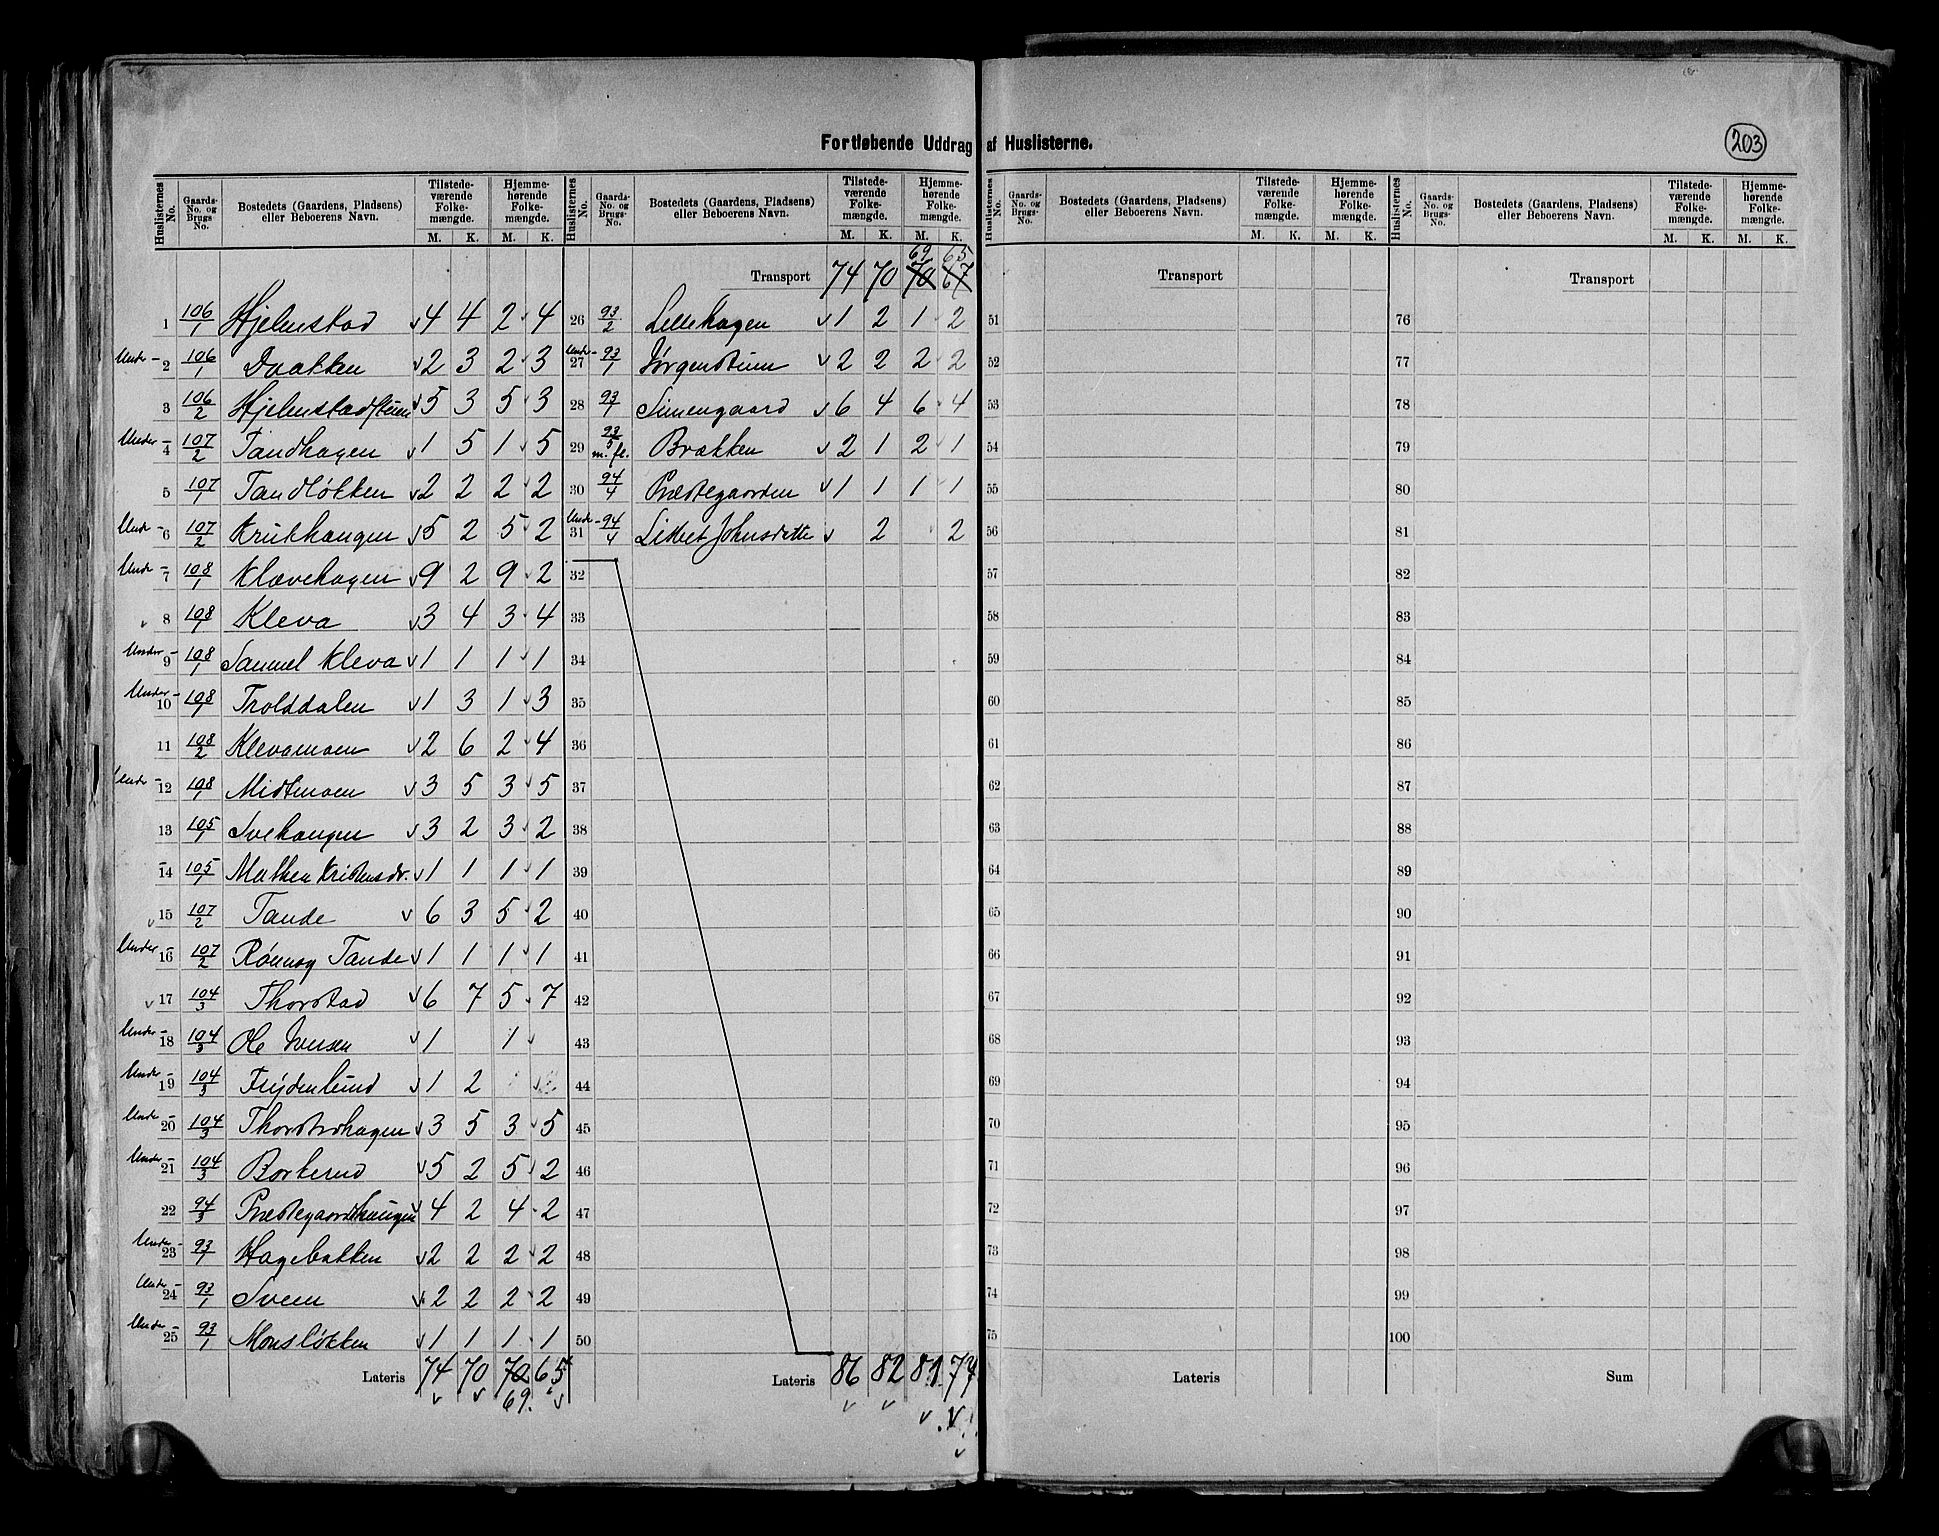 203
Fortløbende Uddrag af Huslisternes.
Huslisternes No. Gaards-No. og Brugs-No. Bostedets (Gaardens, Pladsens) eller Beboerens Navn. Tilstede-værende Folke-mængde. M. K. Hjemme-hørende Folke-mængde. M. K.
1 106/1 Hjelmstad 4 4 2 4
Under - 2 106/1 Daakken 2 3 2 3
3 106/2 Hjelmstadstuen 5 3 5 3
Under - 4 107/2 Tandhagen 1 5 1 5
5 107/1 Tandløkken 2 2 2 2
Under - 6 107/2 Krukhaugen 5 2 5 2
Under - 7 108/1 Klævehagen 9 2 9 2
8 108/1 Kleva 3 4 3 4
Under - 9 108/1 Samuel Kleva 1 1 1 1
Under - 10 108/1 Trolddalen 1 3 1 3
11 108/2 Klevamoen 2 6 2 4
Under - 12 108/1 Midtmoen 3 5 3 5
13 105/1 Svehaugen 3 2 3 2
14 105/1 Mathea Kristensdr. 1 1 1 1
15 107/2 Tande 6 3 5 2
Under - 16 107/2 Rønnog Tande 1 1 1 1
17 104/3 Thorstad 6 7 5 7
Under - 18 104/3 Ole Iversen 1 1
Under - 19 104/3 Frydenlund 1 2
Under - 20 104/3 Thorstadhagen 3 5 3 5
Under - 21 104/3 Borkerud 5 2 5 2
22 94/3 Præstegaardshaugen 4 2 4 2
Under - 23 93/1 Hagebakken 2 2 2 2
Under - 24 93/1 Sveen 2 2 2 2
Under - 25 93/1 Monsløkken 1 1 1 1
Lateris 74 70 70 65
69.
Huslisternes No. Gaards-No. og Brugs-No. Bostedets (Gaardens, Pladsens) eller Beboerens Navn. Tilstede-værende Folke-mængde. M. K. Hjemme-hørende Folke-mængde. M. K.
69 65
Transport 74 70 70 67
26 93/2 Lillehagen 1 2 1 2
Under - 27 93/1 Jørgenstuen 2 2 2 2
28 93/1 Simengaard 6 4 6 4
29 93/5 m. fl. Brækken 2 1 2 1
30 94/4 Præstegaarden 1 1 1 1
Under - 31 94/4 Lisbet Johnsdatte 2 2
32
33
34
35
36
37
38
39
40
41
42
43
44
45
46
47
48
49
50
Lateris 86 82 81 77
Huslisternes No. Gaards-No. og Brugs-No. Bostedets (Gaardens, Pladsens) eller Beboerens Navn. Tilstede-værende Folke-mængde. M. K. Hjemme-hørende Folke-mængde. M. K.
Transport
51
52
53
54
55
56
57
58
59
60
61
62
63
64
65
66
67
68
69
70
71
72
73
74
75
Lateris
Huslisternes No. Gaards-No. og Brugs-No. Bostedets (Gaardens, Pladsens) eller Beboerens Navn. Tilstede-værende Folke-mængde. M. K. Hjemme-hørende Folke-mængde. M. K.
Transport
76
77
78
79
80
81
82
83
84
85
86
87
88
89
90
91
92
93
94
95
96
97
98
99
100
Sum